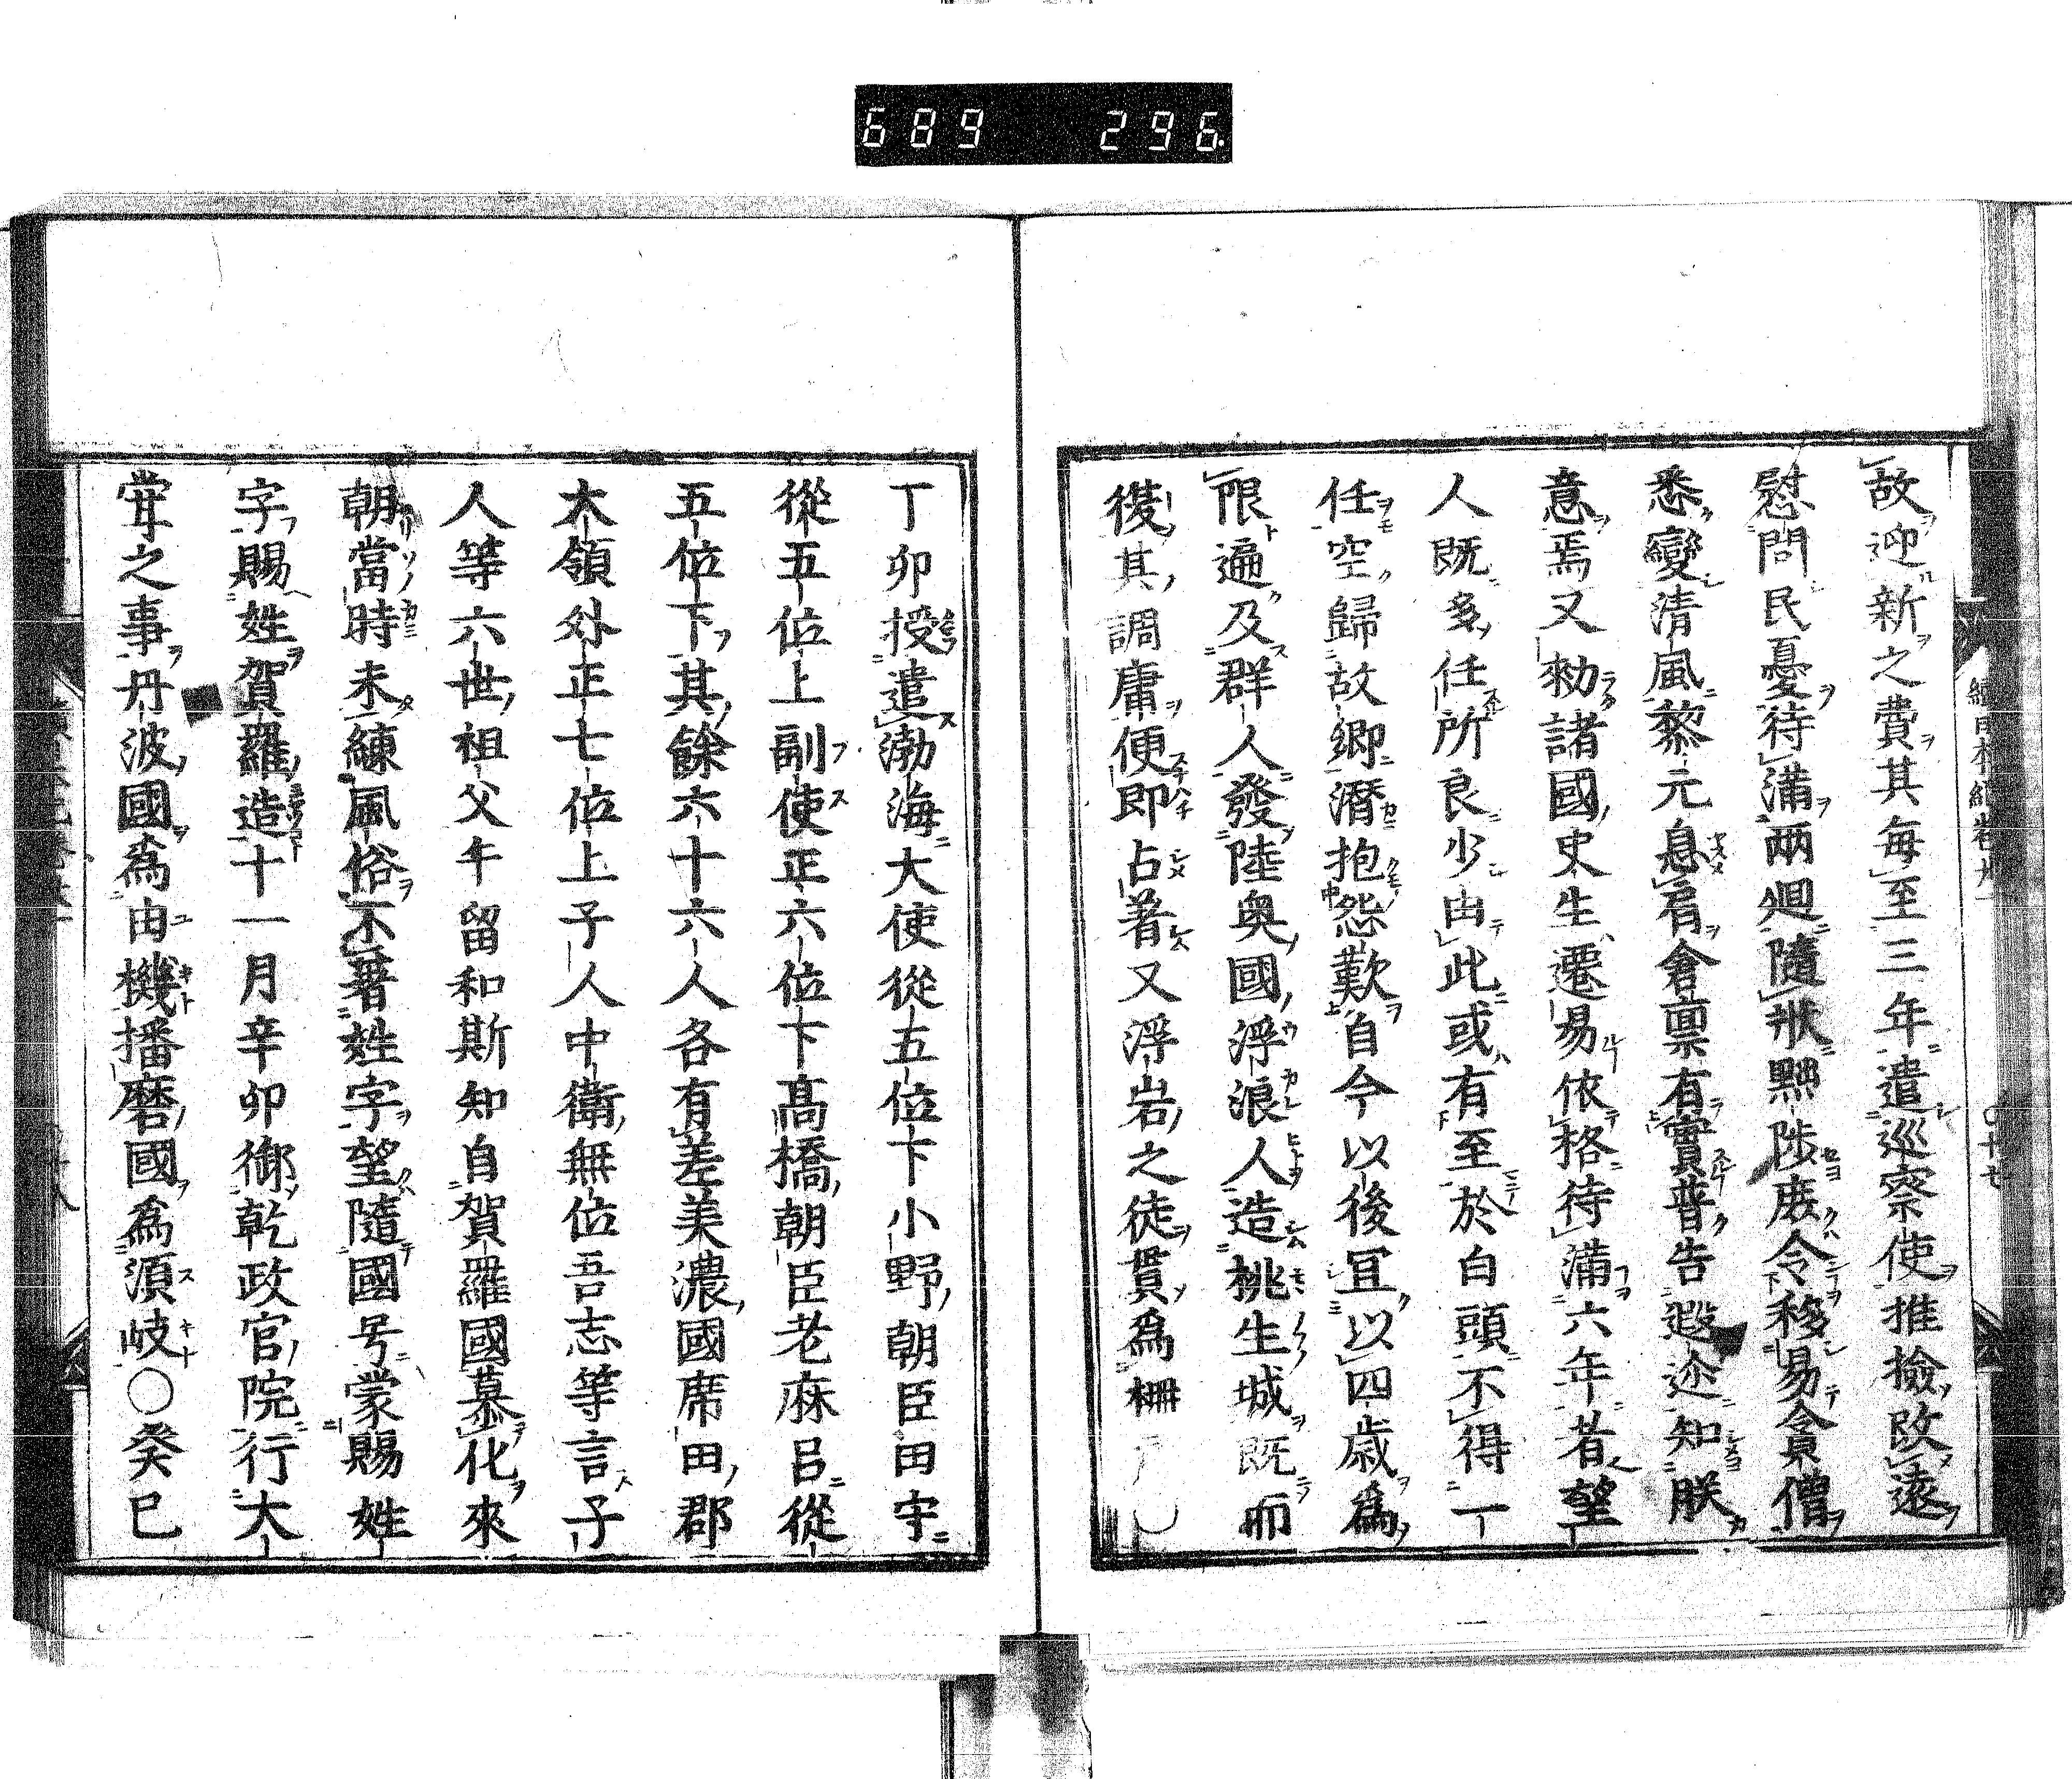 689 296
故迎新之費其毎至三年遣巡察使推撿政迹
慰問民憂待滿兩廻隨狀黜陟庶令移易貪僧
悉變清風黎元息肩倉稟有實普告遐迩知朕
意焉又勅諸國史生遷易依格待滿六年者望
人既多任所良少由此或有至於白頭不得一
任空歸故郷潛抱怨歎自今以後冝以四歳爲
限遍及群人發陸奥國浮浪人造桃生城既而
復其調庸便即占著又浮宕之徒貫爲柵戸〇
丁卯授遣渤海大使從五位下小野朝臣田守
從五位上副使正六位下髙橋朝臣老麻呂從
五位下其餘六十六人各有差美濃國席田郡
大領外正七位上子人中衛無位吾志等言子
人等六世祖父乎留和斯知自賀羅國慕化來
朝當時未練風俗不著姓字望隨國号蒙賜姓
字賜姓賀羅造十一月辛卯御乾政官院行大
甞之事丹波國爲由機播磨國爲湏岐〇癸巳